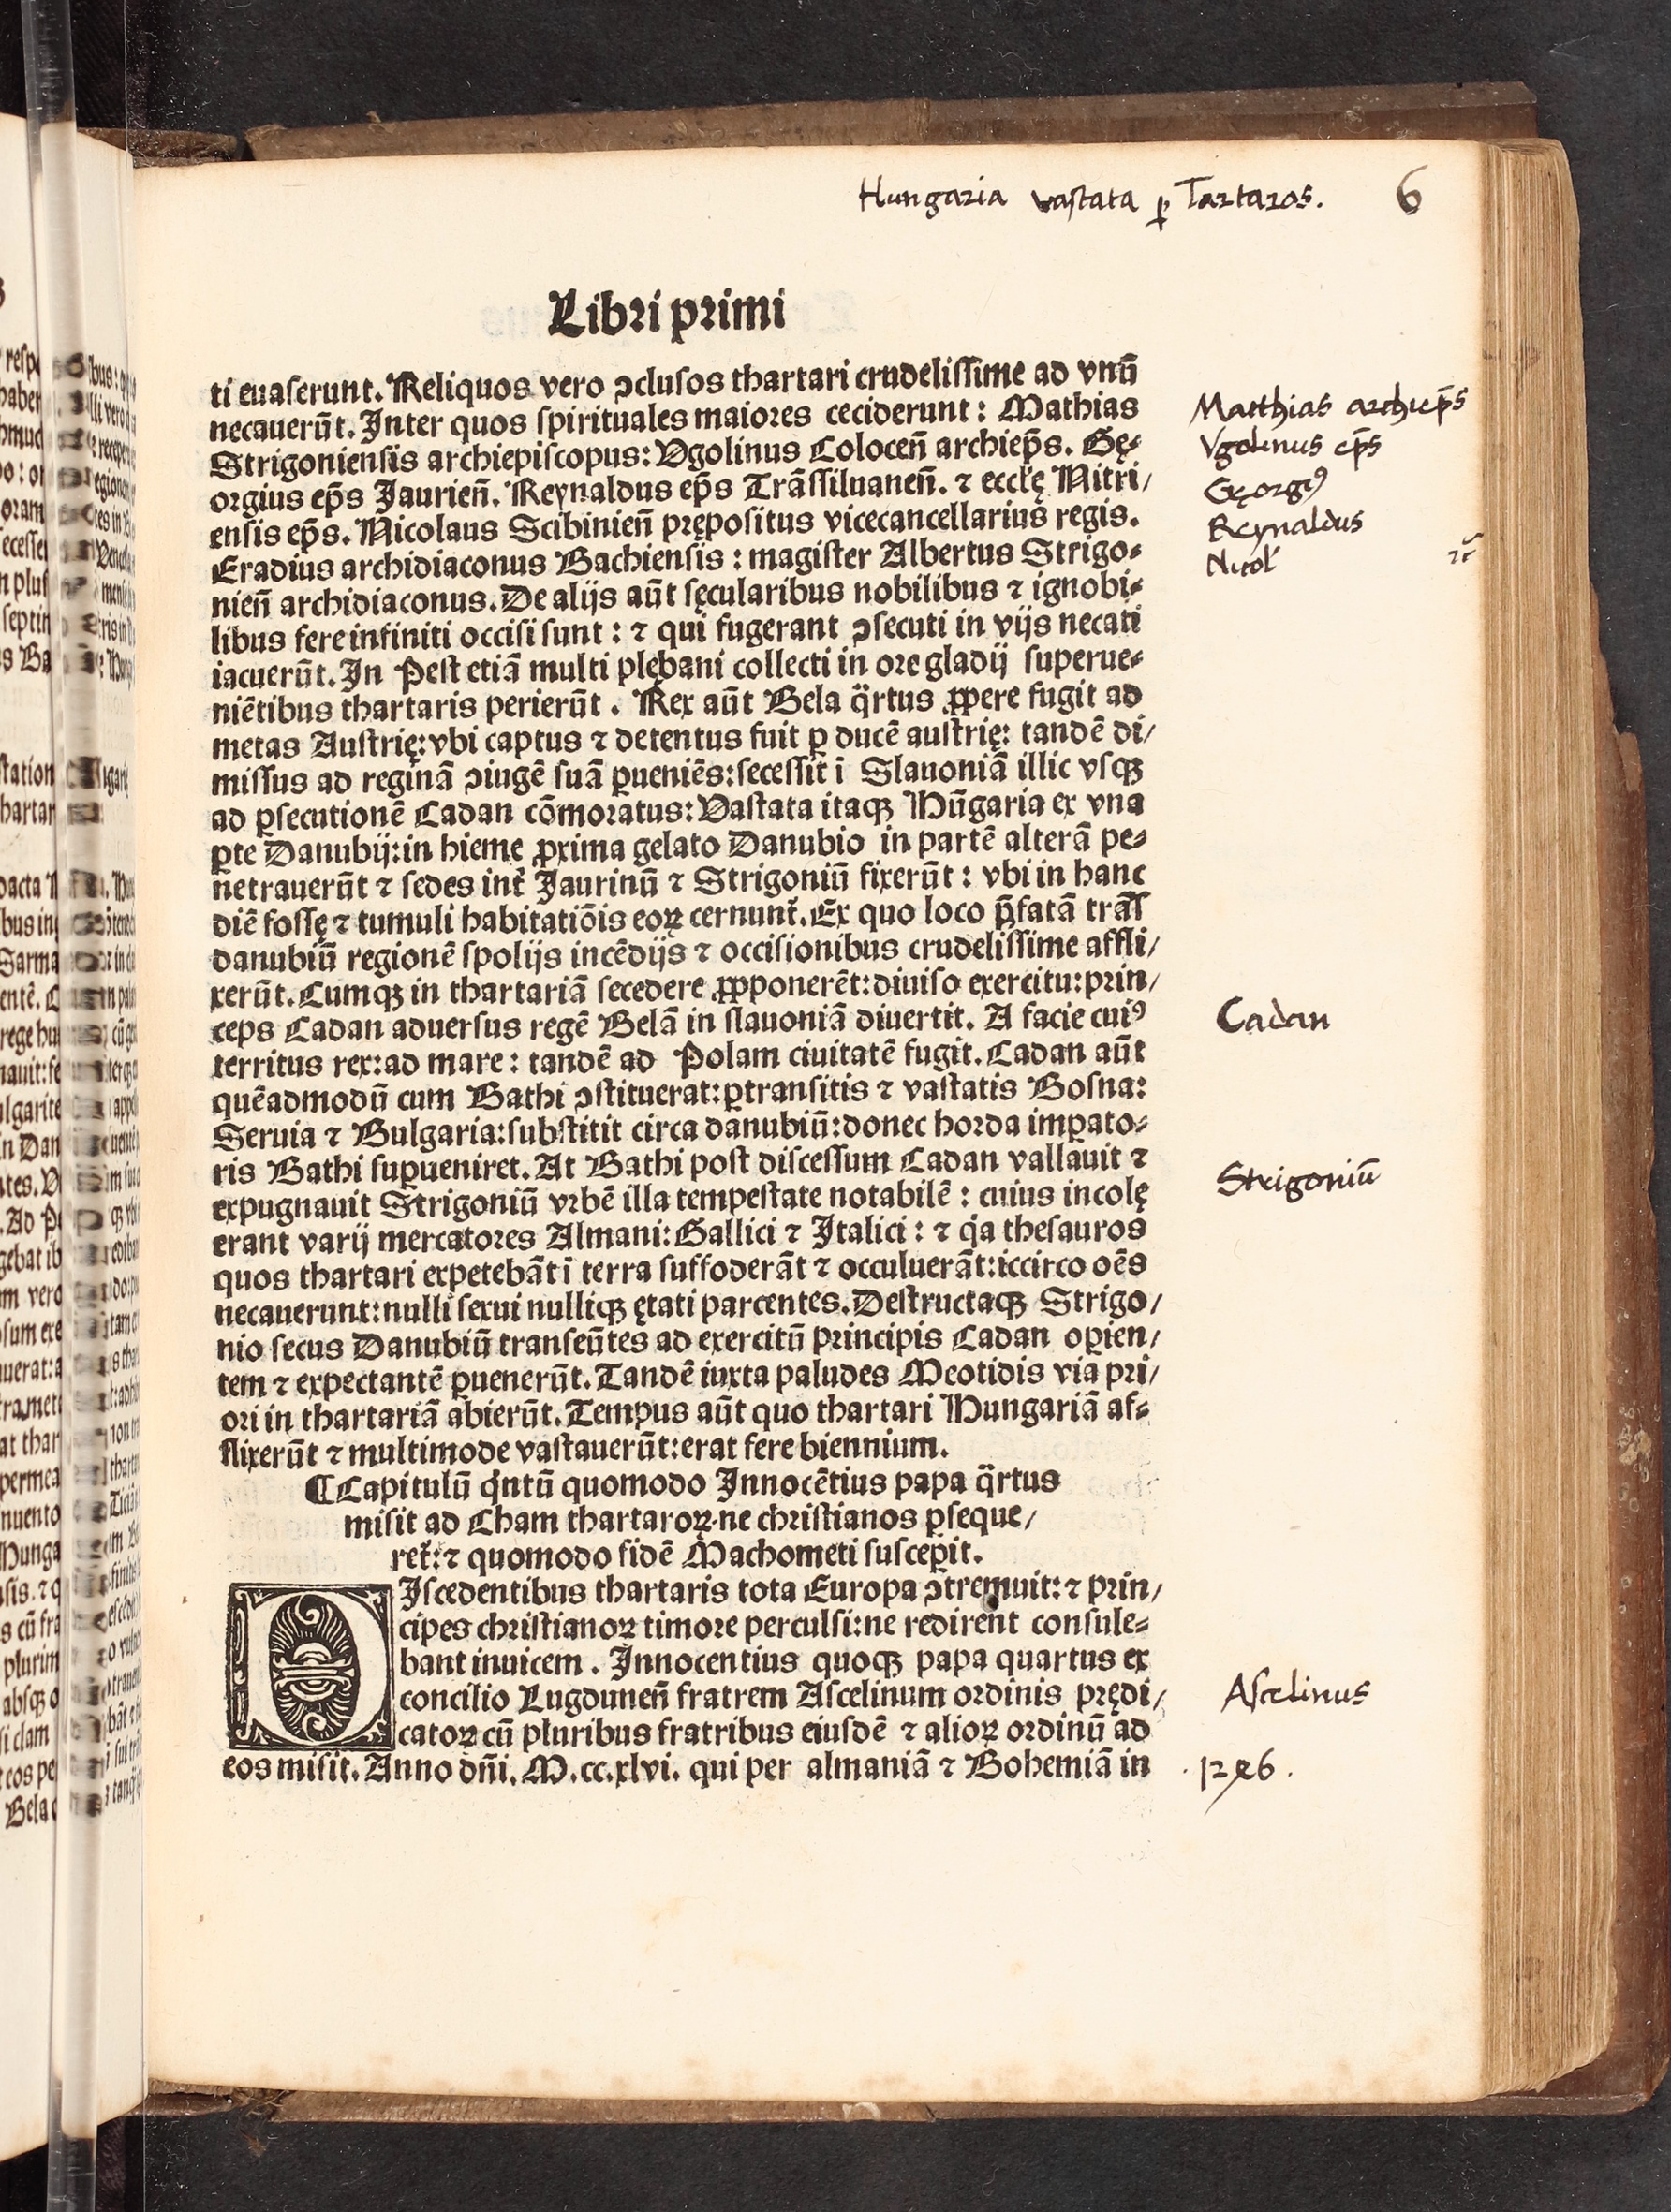 Hungaria vastata ꝑ Tartaros. 6
Libri primi
ti euaserunt. Reliquos vero ɔclusos thartari crudelissime ad vnū
necauerūt. Inter quos spirituales maiores ceciderunt: Mathias
Strigoniensis archiepiscopus: Vgolinus Colocen̄ archiep̄s. Gę⸗
orgius ep̄s Jaurien̄. Reynaldus ep̄s Trāssiluanen̄. ⁊ eccłę Nitri/
ensis ep̄s. Nicolaus Scibinien̄ prępositus vicecancellarius regis.
Eradius archidiaconus Bachiensis: magister Albertus Strigo⸗
nien̄ archidiaconus. De alijs aūt sęcularibus nobilibus ⁊ ignobi⸗
libus fere infiniti occisi sunt: ⁊ qui fugerant ɔsecuti in vijs necati
iacuerūt. In Pest etiā multi plębani collecti in ore gladij superue⸗
niētibus thartaris perierūt. Rex aūt Bela q̈rtus ꝓpere fugit ad
metas Austrię: vbi captus ⁊ detentus fuit ꝑ ducē austrię: tandē di/
missus ad reginā ɔiugē suā ꝑueniēs: secessit ī Slauoniā illic vsqꝫ
ad ꝑsecutionē Cadan cōmoratus: Vastata itaqꝫ Hūgaria ex vna
ꝑte Danubij: in hieme ꝓxima gelato Danubio in partē alterā pe⸗
netrauerūt ⁊ sedes int̄ Jaurinū ⁊ Strigoniū fixerūt: vbi in hanc
diē fossę ⁊ tumuli habitatiōis eoꝝ cernunt̄. Ex quo loco p̄fatā trās
danubiū regionē spolijs incēdijs ⁊ occisionibus crudelissime affli/
xerūt. Cumqꝫ in thartariā secedere ꝓponerēt: diuiso exercitu: prin/
ceps Cadan aduersus regē Belā in slauoniā diuertit. A facie cuiꝰ
territus rex: ad mare: tandē ad Polam ciuitatē fugit. Cadan aūt
quēadmodū cum Bathi ɔstituerat: ꝑtransitis ⁊ vastatis Bosna:
Seruia ⁊ Bulgaria: substitit circa danubiū: donec horda imꝑato⸗
ris Bathi suꝑueniret. At Bathi post discessum Cadan vallauit ⁊
expugnauit Strigoniū vrbē illa tempestate notabilē: cuius incolę
erant varij mercatores Almani: Gallici ⁊ Italici: ⁊ qͣa thesauros
quos thartari expetebāt ī terra suffoderāt ⁊ occuluerāt: iccirco oēs
necauerunt: nulli sexui nulliqꝫ ętati parcentes. Destructaqꝫ Strigo/
nio secus Danubiū transeūtes ad exercitū principis Cadan oꝑien/
tem ⁊ expectantē ꝑuenerūt. Tandē iuxta paludes Meotidis via pri/
ori in thartariā abierūt. Tempus aūt quo thartari Hungariā af⸗
flixerūt ⁊ multimode vastauerūt: erat fere biennium.
¶ Capitulū qͥntū quomodo Innocētius papa q̈rtus
misit ad Cham thartaroꝝ. ne christianos ꝑseque/
ret̄: ⁊ quomodo fidē Machometi suscepit.
DIscedentibus thartaris tota Europa ɔtremuit: ⁊ prin/
cipes christianoꝝ timore perculsi: ne redirent consule⸗
bant inuicem. Innocentius quoqꝫ papa quartus ex
concilio Lugdunen̄ fratrem Ascelinum ordinis prędi/
catoꝝ cū pluribus fratribus eiusdē ⁊ alioꝝ ordinū ad
eos misit. Anno dn̄i. M.cc.xlvi. qui per almaniā ⁊ Bohemiā in
Matthias archiep̄s
Vgolinus ep̄s
Gęorgꝰ
Reynaldus
Nicol'
Cadan
Strigoniū
Ascelinus
. 1246 .